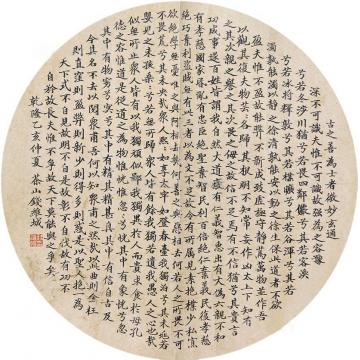 古之善為士者微妙玄通
深不可識夫惟不可識故強為之容豫
兮若冬涉川猶兮若畏四鄰儼兮其若客渙
兮若冰將釋敦兮其若樸曠兮其若谷渾兮其若
濁孰能濁以靜之徐清孰能安以動之徐生保此道者不欲
盈夫惟不盈故能弊不新成致虛極守靜篤萬物並作吾
以觀其復夫物芸芸各歸其根明不知常妄作凶太上下知有
之其次親之譽之其次畏之侮之故信不足焉有不信猶兮其貴言
功成事遂百姓謂我自然大道廢有仁義智慧出有大偽六親不和
有孝慈國家昏亂有忠臣絕聖棄智民利百倍絕仁棄義民復孝慈
絕巧棄利盜賊無有此三者以為文不足故令有所屬見素抱樸少私寡
欲絕學無憂唯之與阿相去幾何善之與惡相去何若人之所畏不可
不畏荒兮其未央哉眾人熙熙如享太牢如登春臺我獨泊兮其未兆若
嬰兒之未孩乘乘兮若無所歸眾人皆有餘我獨若遺我愚人之心也哉
所止眾人皆有以我獨頑似鄙我獨異於人而貴求食於母孔
德之容惟道是從道之為物惟恍惟惚兮恍其中有象恍兮惚
其中有物窈兮冥兮其中有精其精甚真其中有信自古及
今其名不去以閱眾甫吾何以知眾甫之然哉以此曲則全枉
則直窪則盈弊則新少則得多則惑是以聖人抱一為
天下式不自見故明不自是故彰不自伐故有功不
自矜故長夫惟不爭故天下莫能與之爭矣
乾隆乙亥仲夏茶山錢維城